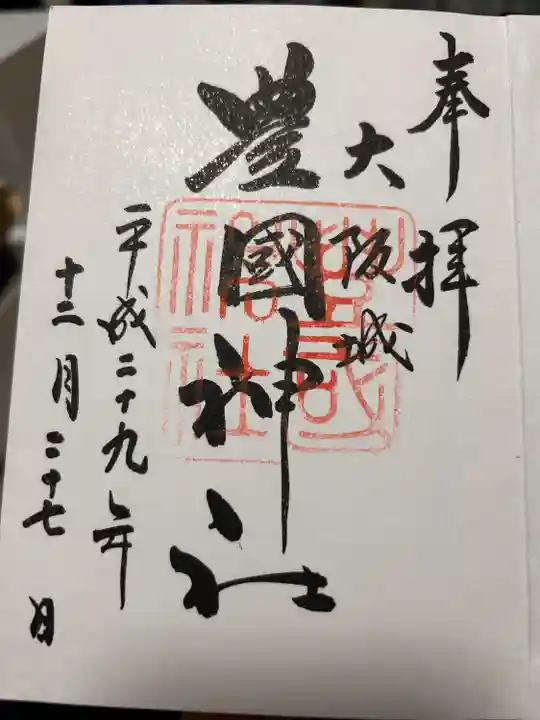 奉拝
大阪城
豊國神社
平成二十九年
十二月二十七日